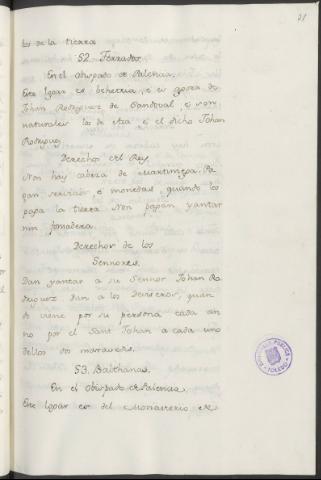 21
los de la tierra
52. Ferrados.
En el obispado de Palencia.
Este logar es behetria, e es agora de
Johan Rodriguez de Sandoval e son
naturales los de Aza e el dicho Johan
Rodriguez
Derechos del Rey
Non hay cabeza de Martiniega. Pa
gan servicios e monedas quando los
paga la tierra Non pagan yantar
nin fonsadera.
Derechos de los
Sennores.
Dan yantar a su Sennor Johan Ro
driguez Dan a los Deviseros, quan
do viene por su persona cada an
no por el Sant Johan a cada uno
dellos dos maravedis.
53. Balthanas.
En el obispado de Palencia
Este logar es del Monasterio de
PUBLICA
TOLEDO